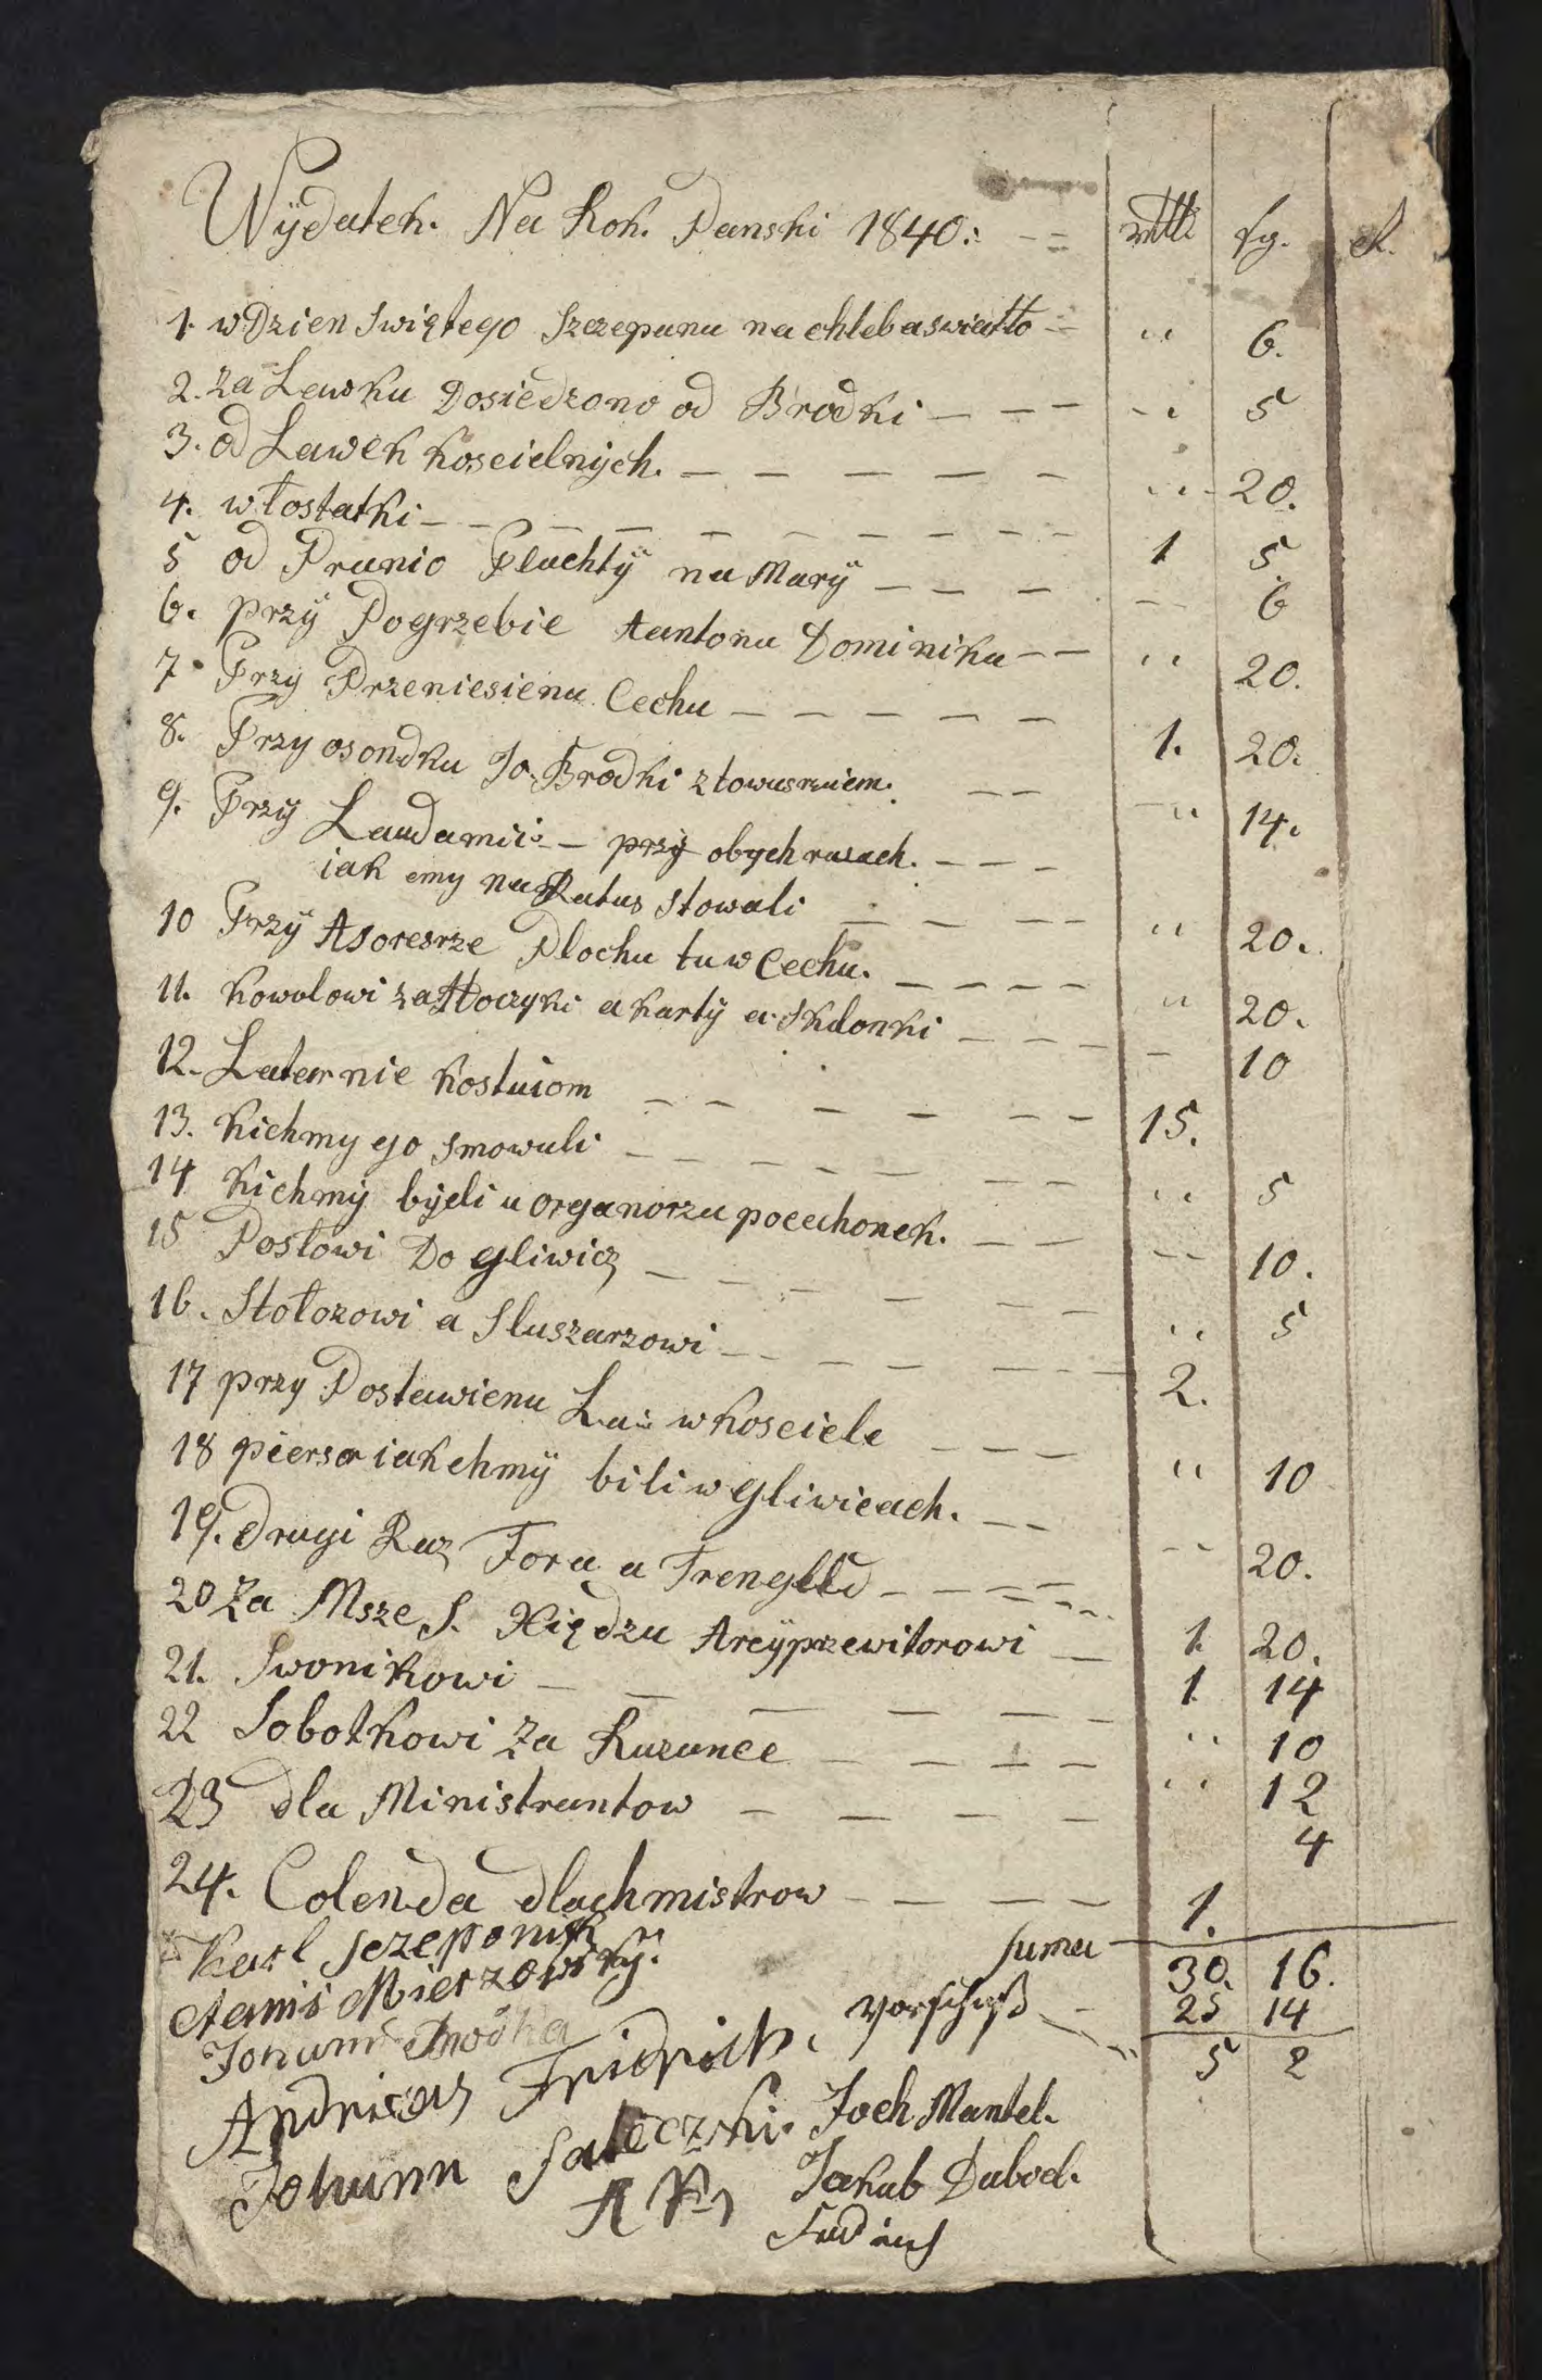 Wÿdatek. Na Rok. Panski 1840.: rttl. sg. d.
1. w Dzien Swiętego Szczepana na chleb a swiatło " 6.
2. Za Lawku Dosiedzono od Brodki " 5
3. od Lawek Koscielnÿch. " 20.
4. w łostatki 1 5
5 od Pranio Pluchtÿ na Marÿ 6
6. przÿ Pogrzebie Aantona Dominika " 20.
7. Przy Przeniesienu Cechu 1. 20.
8. Przy osondku Jo. Brodki z towarzniem. " 14.
9. Przÿ Laudamii przÿ obych razach.
iak emy na Ratus stowali " 20.
10 Przÿ Asoresrze Plochu tu w Cechu. " 20.
11. Kowolowi za Kloczyki a kartÿ a Sklonki 10
12. Laternie Kostuiom 15.
13. Kichmy go Smowali " 5
14 Kichmÿ bÿeli u organorza po cechonek. 10.
15 Posłowi Do Gliwicz " 5
16. Stołorowi a Sluszarzowi 2.
17 przy Postawienu w Kosciele " 10
18 pierso iakchmÿ bili w Gliwicach. 20.
19. Drugi Raz Fora a Trengeld 1. 20.
20 Za Msze S. Xiędzu Arcÿprzewitorowi 1. 14
21. Swonikowi " 10
22 Sobotkowi Za Kazanee " 12
23 dla Ministrantow 4
24. Colenda dlachmistrow 1.
Suma 30. 16.
Karl Sczeponik
Vorschuß 25 14
Mierzowskÿ.
5 2
Johann Brodka
Andrieas Fridrich.
Joch Mantel.
Johann Saleczki.
Jakub Dubiel.